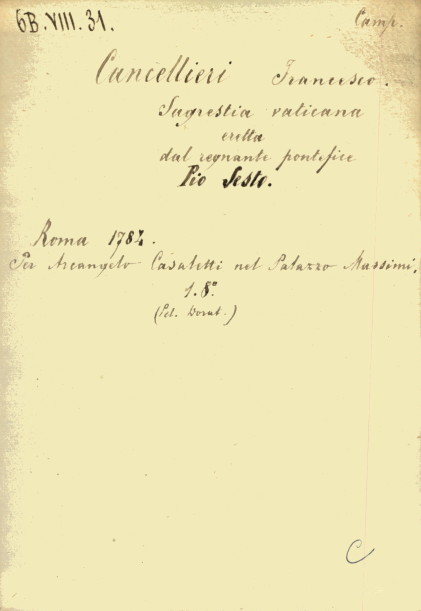 6B.VIII.31.
Camp.
Cancellieri Francesco.
Sagrestia vaticana
eretta
dal regnante pontefice
Pio Sesto.
Roma 1784.
Per Arcangelo Casaletti nel Palazzo Massimi.
1. 8º
C